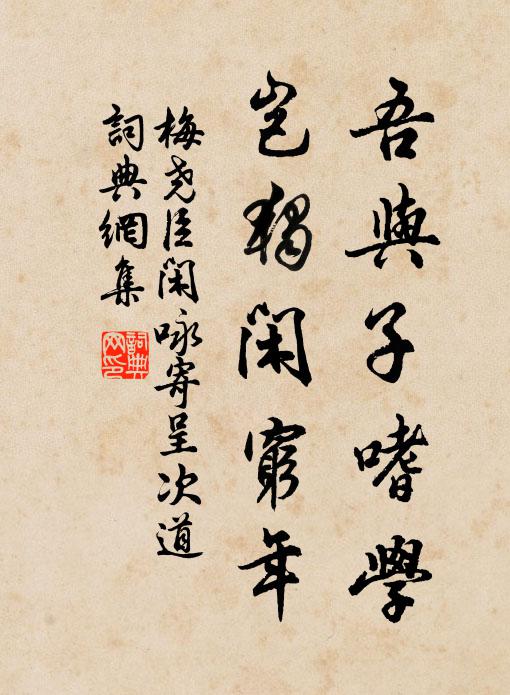 吾與子嗜學
豈獨閑窮年
梅堯臣閑咏寄呈次道
詞典網集
詞典网印